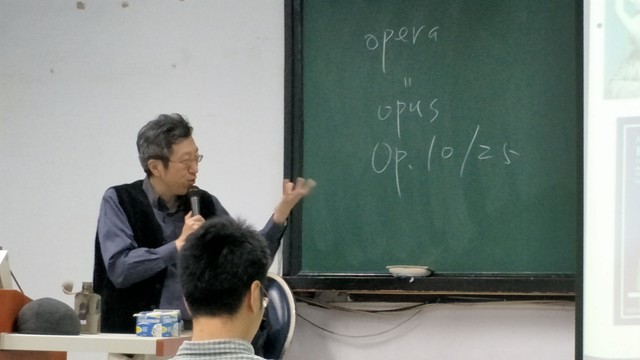 opera
=
opus
Op. 10/25